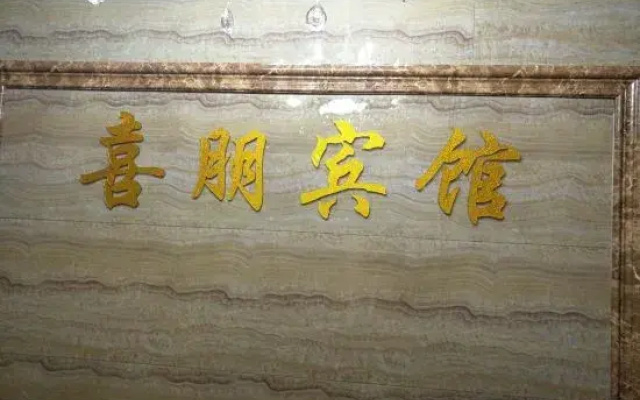 喜朋宾馆